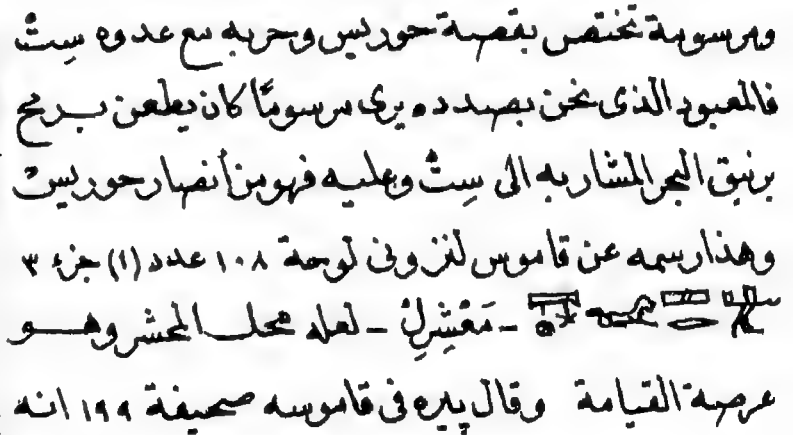 ومرسومة تختص بقصة حوريس وحربه مع عدوه سِتْ
فالمعبود الذى نحن بصدده يرى مرسومًا كان يطعن برمح
برنيق البحر المشار به الى سِتْ وعليه فهو من أنصار حوريس
وهذا رسمه عن قاموس لنزونى لوحة ١٠٨ عدد (١) جزء ٣
- مَعْشِرِلْ - لعله محل المحشر وهو
عرصة القيامة وقال پيره فى قاموسه صحيفة ١٩٩ انه